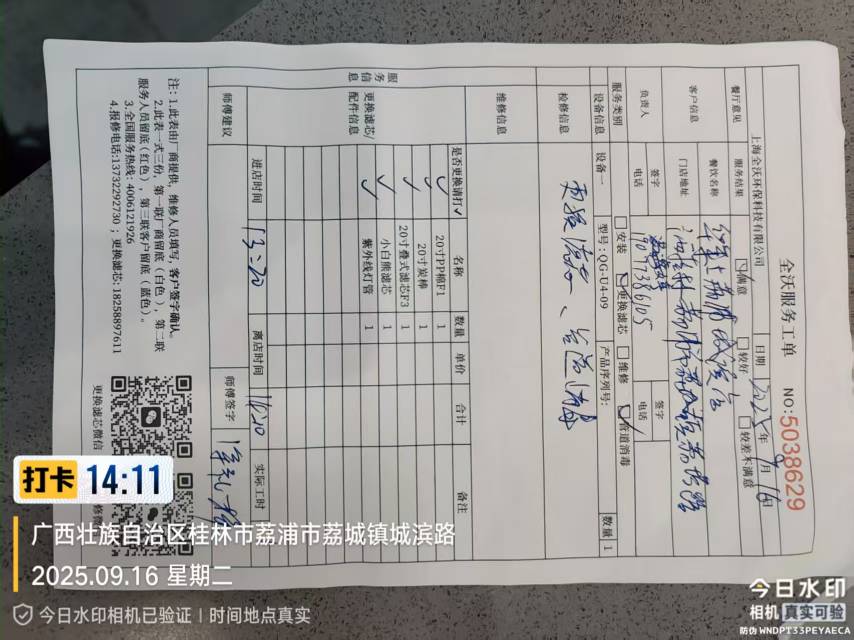 全沃服务工单 NO:5038629
上海全沃环保科技有限公司 日期 2025年9月16日
餐厅意见 服务结果 满意 较好 较差不满意
客户信息 餐饮名称
门店地址
负责人 签字 签字
电话 19077386105 电话
服务类别 安装 更换滤芯 维修 管道消毒
设备信息 设备一 型号:QG-U4-09 产品序列号: 数量 1
检修信息 更换滤芯、管道消毒
维修信息
服务信息
更换滤芯/配件信息 是否更换请打✓ 名称 数量 单价 合计 备注
✓ 20寸PP棉F1 1
✓ 20寸炭棒 1
✓ 20寸叠式滤芯F3 1
✓ 小白熊滤芯 1
✓ 紫外线灯管 1
师傅建议
进店时间 13:20 离店时间 14:10 实际工时
师傅签字
注:1.此表由厂商提供,维修人员填写,客户签字确认。
2.此表一式三份,第一联厂商留底(白色),第二联
服务人员留底(红色),第三联客户留底(蓝色)。
3.全国服务热线:4006121926
4.报修电话:13732292730;更换滤芯:18258897611
更换滤芯微信
打卡 14:11
广西壮族自治区桂林市荔浦市荔城镇城滨路
2025.09.16 星期二
今日水印相机已验证 | 时间地点真实
今日水印
相机 真实可验
防伪 WNDPT33PEYAECA